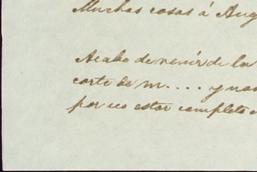 Muchas cosas á Aug
Acabo de venir de la
corte de m.... y nos
por eso estar completo